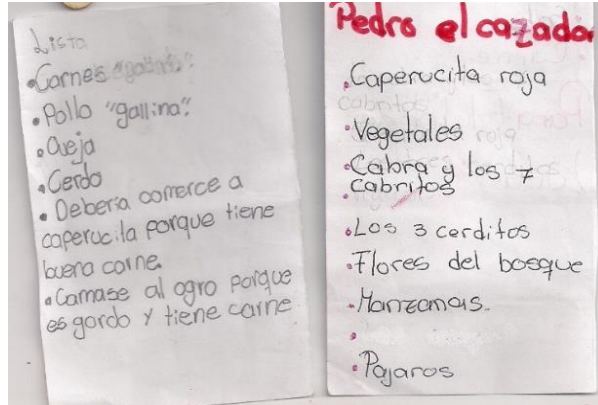 Lista
• Carnes
• Pollo "gallina".
• Oveja
• Cerdo
• Deberia comerce a
caperucita porque tiene
buena carne.
• Comase al ogro porque
es gordo y tiene carne
Pedro el cazador
• Caperucita roja
• Vegetales
• Cabra y los 7
cabritos
•
• Los 3 cerditos
• Flores del bosque
• Manzanas.
•
• Pajaros